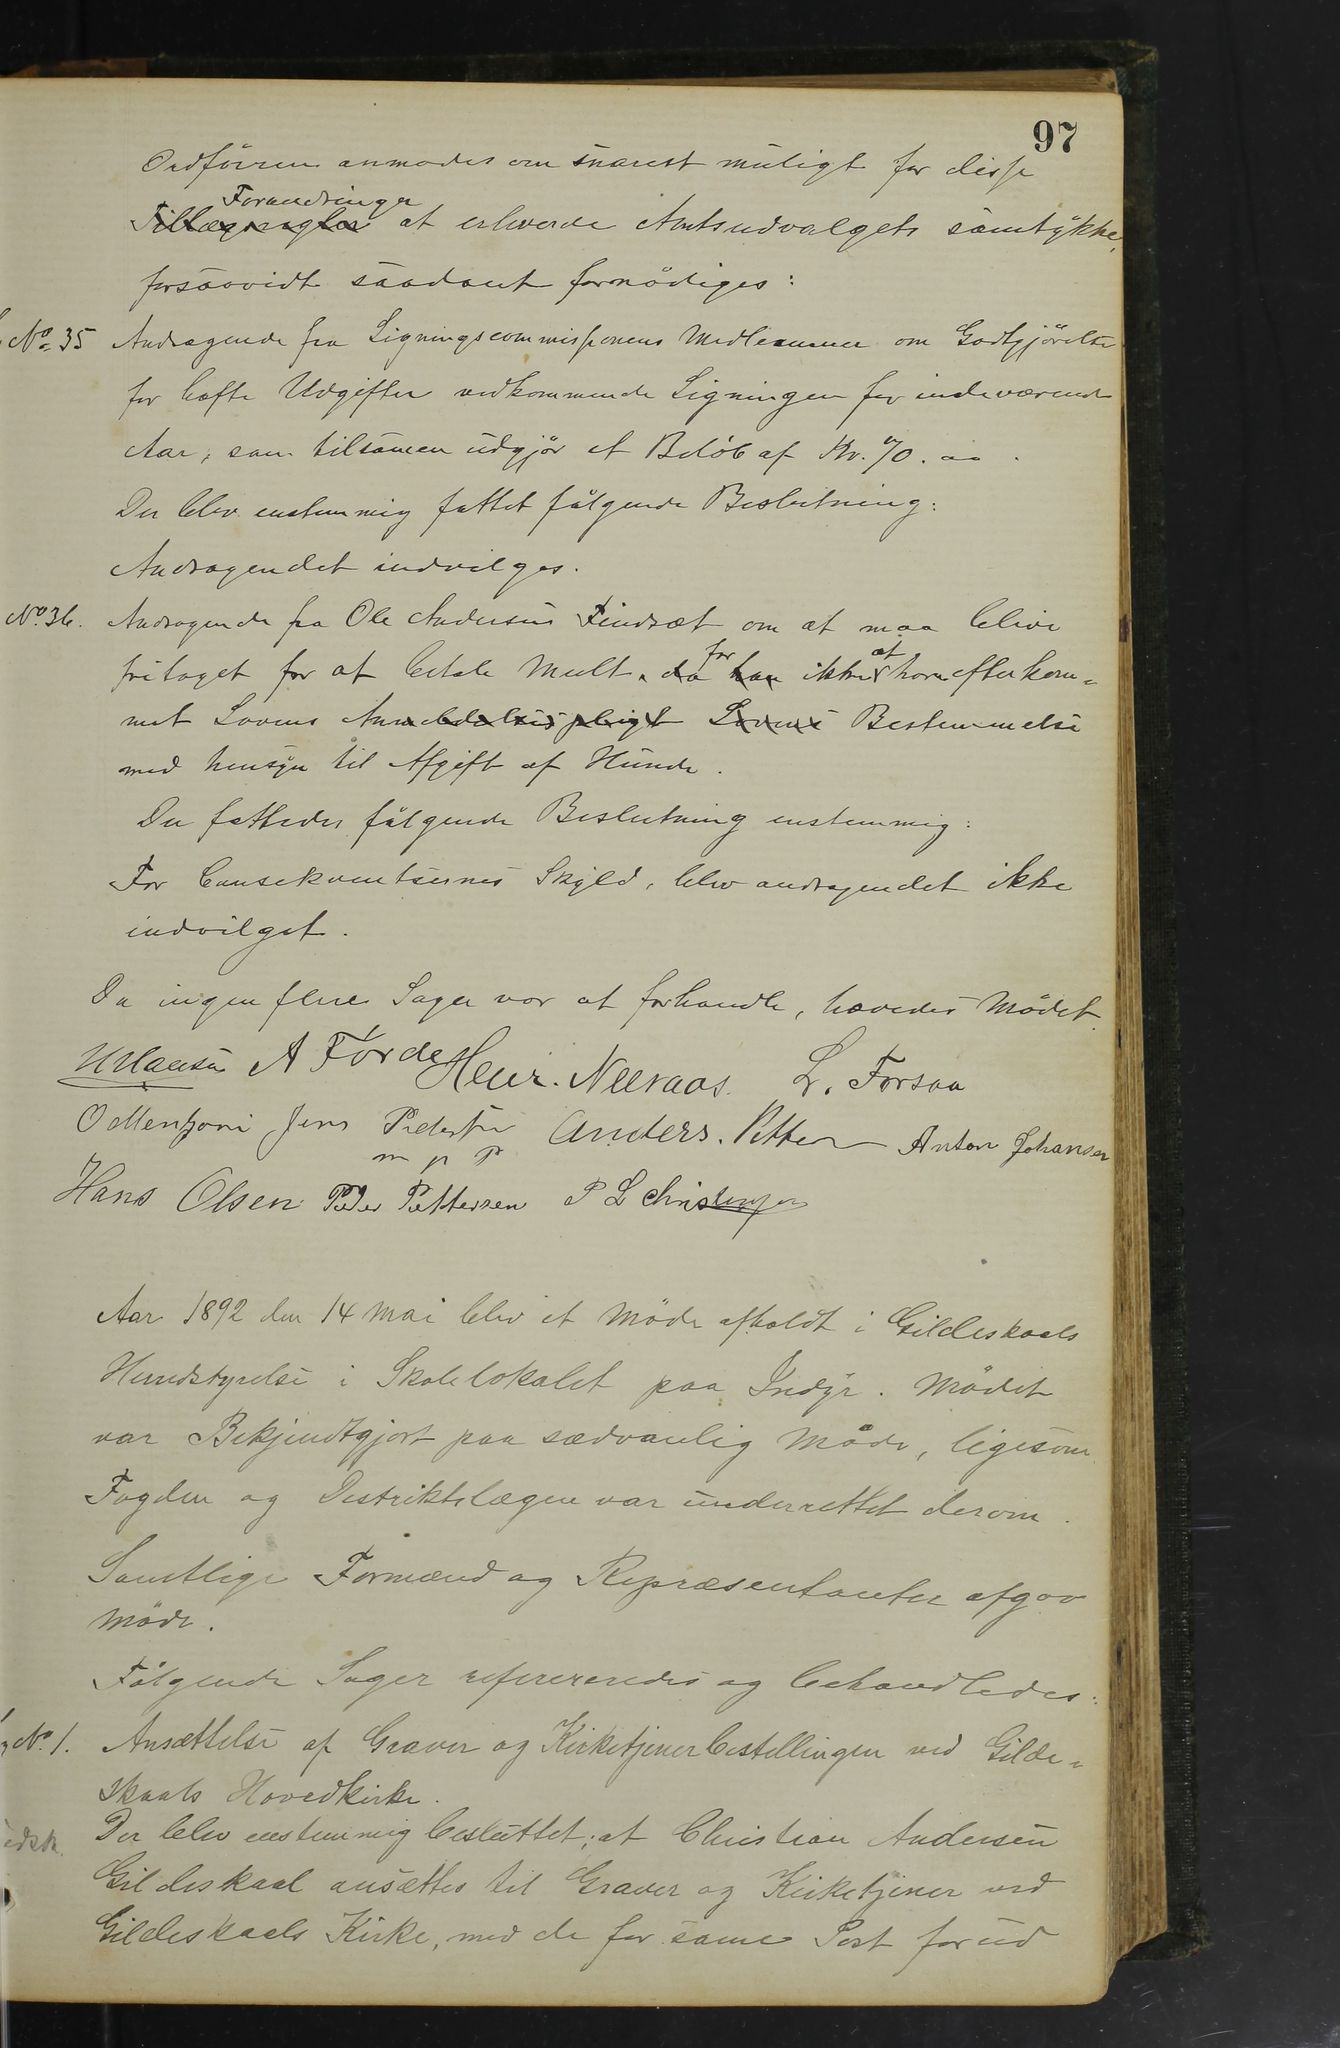 97
Ordföreren anmodes om snarest muligt for disse
Forandringer
Tillægsregler at erhverve Amtsudvalgets samtykke,
forsaavidt saadant fornödiges:
No. 35 Andragende fra Ligningscommissionens Medlemmer om Godtgjörelse
for hafte Udgifter vedkommende Ligningen for indeværende
Aar, som tilsamen udgjör et Belöb af Kr. 70. oo.
Der blev enstemmig fattet fölgende Beslutning:
Andragendet indvilges.
No. 36. Andragende fra Ole Andersen Findsæt om at maa blive
fritaget for at betale Mult. da han for ikke at have efterkom=
met Lovens Anmeldelsespligt Lovens Bestemmelse
med hensyn til Afgift af Hunde.
Der fattedes fölgende Beslutning enstemmig:
For Consekventsernes Skyld, blev andragendet ikke
indvilget.
Da ingen flere Sager var at forhandle, hævedes Mödet.
A Förde Henr. Neeraas. L. Forsaa
Jens Pedersen Anders. Petter Anton Johansen
m p P
Hans Olsen Peder Pettersen P L Christensen
Aar 1892 den 14 Mai blev et Möde afholdt i Gildeskaals
Herredstyrelse i Skolelokalet paa Indyr. Mödet
var Bekjendtgjort paa sædvanlig Maade, ligesom
Fogden og Destriktslægen var underrettet derom.
Samtlige Formænd og Repræsentanter afgav
Möde.
Fölgende Sager refereredes og behandledes:
No. 1. Ansættelse af Graver og Kirketjenerbestellingen ved Gilde=
skaals Hovedkirke.
Der blev enstemmig besluttet; at Christian Andersen
Gildeskaal ansættes til Graver og Kirketjener ved
Gildeskaals Kirke, med de for same Post forud